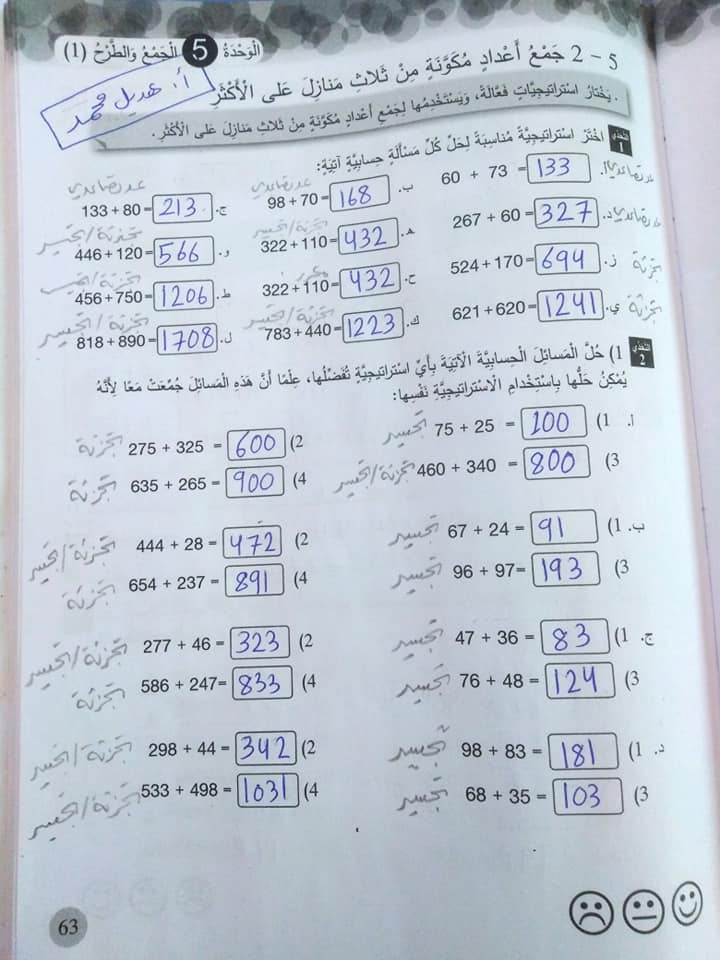 الْوَحْدَةُ 5 الْجَمْعُ وَالطَّرْحُ (1)
أ. هديل محمد
5 – 2 جَمْعُ أَعْدادٍ مُكَوَّنَةٍ مِنْ ثَلاثِ مَنازِلَ عَلى الْأَكْثَرِ
. يَخْتارُ اسْتراتيجِيّاتٍ فَعّالَةً، وَيَسْتَخْدِمُها لِجَمْعِ أَعْدادٍ مُكَوَّنَةٍ مِنْ ثَلاثِ مَنازِلَ عَلى الْأَكْثَرِ.
التحدي 1 اخْتَرْ اسْتراتيجِيَّةً مُناسِبَةً لِحَلِّ كُلِّ مَسْأَلَةٍ حِسابِيَّةٍ آتِيَةٍ:
عد تصاعدي أ. 60 + 73 = 133 ب. 98 + 70 = 168 عد تصاعدي ج. 133 + 80 = 213 عد تصاعدي
عد تصاعدي د. 267 + 60 = 327 هـ. 322 + 110 = 432 التجزئة / التجسير و. 446 + 120 = 566 تجزئة / التجسير
تجزئة ز. 524 + 170 = 694 ح. 322 + 110 = 432 مكرر ط. 456 + 750 = 1206 التجزئة / التجسير
تجزئة ي. 621 + 620 = 1241 ك. 783 + 440 = 1223 التجزئة / التجسير ل. 818 + 890 = 1708 التجزئة / التجسير
التحدي 2 1) حُلَّ الْمَسائِلَ الْحِسابِيَّةَ الْآتِيَةَ بِأَيِّ اسْتراتيجِيَّةٍ تُفَضِّلُها، عِلْمًا أَنَّ هَذِهِ الْمَسائِلَ جُمِعَتْ مَعًا لِأَنَّهُ
يُمْكِنُ حَلُّها بِاسْتِخْدامِ الْاسْتراتيجِيَّةِ نَفْسِها:
أ. 1) 75 + 25 = 100 تجسير 2) 275 + 325 = 600 التجزئة
3) 460 + 340 = 800 التجزئة / التجسير 4) 635 + 265 = 900 التجزئة
ب. 1) 67 + 24 = 91 تجسير 2) 444 + 28 = 472 التجزئة / التجسير
3) 96 + 97 = 193 تجسير 4) 654 + 237 = 891 تجزئة
ج. 1) 47 + 36 = 83 تجسير 2) 277 + 46 = 323 التجزئة / التجسير
3) 76 + 48 = 124 تجسير 4) 586 + 247 = 833 التجزئة
د. 1) 98 + 83 = 181 تجسير 2) 298 + 44 = 342 التجزئة / التجسير
3) 68 + 35 = 103 تجسير 4) 533 + 498 = 1031 التجزئة / التجسير
63